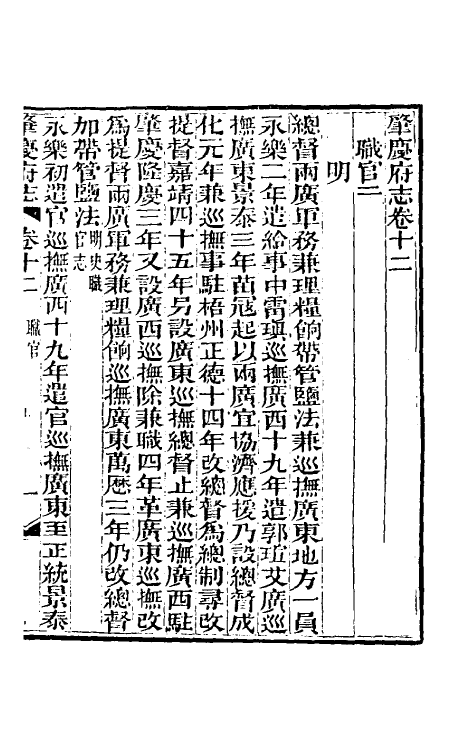 肇慶府志卷十二
職官二
明
總督兩廣軍務兼理糧餉帶管鹽法兼巡撫廣東地方一員
永樂二年遣給事中雷瑱巡撫廣西十九年遣郭瑄艾廣巡
撫廣東景泰三年苗寇起以兩廣宜協濟應援乃設總督成
化元年兼巡撫事駐梧州正德十四年改總督為總制尋改
提督嘉靖四十五年另設廣東巡撫總督止兼巡撫廣西駐
肇慶隆慶三年又設廣西巡撫除兼職四年革廣東巡撫改
為提督兩廣軍務兼理糧餉巡撫廣東萬歷三年仍改總督
加帶管鹽法明史職官志
永樂初遣官巡撫廣西十九年遣官巡撫廣東至正統景泰
肇慶府志
卷十二
職官